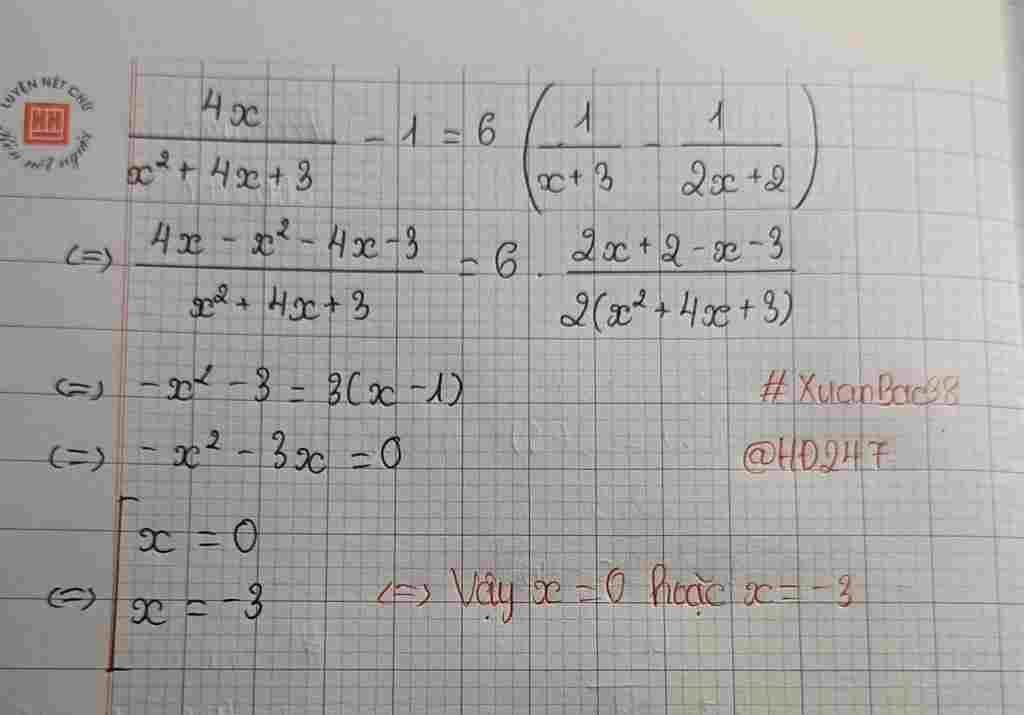 LUYỆN NÉT CHỮ
HH
4x/(x² + 4x + 3) - 1 = 6 (1/(x + 3) - 1/(2x + 2))
<=> (4x - x² - 4x - 3)/(x² + 4x + 3) = 6 . (2x + 2 - x - 3)/(2(x² + 4x + 3))
<=> -x² - 3 = 3(x - 1) # XuanBac98
<=> -x² - 3x = 0 @HD247
<=> [ x = 0
x = -3 <=> Vậy x = 0 hoặc x = -3